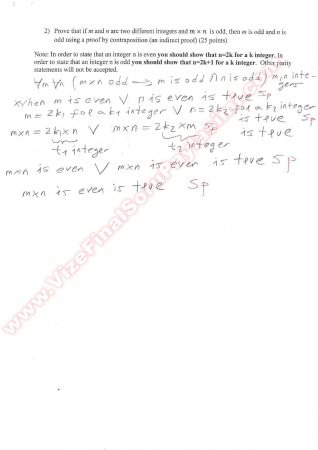 2) Prove that if m and n are two different integers and m × n is odd, then m is odd and n is
odd using a proof by contraposition (an indirect proof) (25 points)
Note: In order to state that an integer n is even you should show that n=2k for a k integer. In
order to state that an integer n is odd you should show that n=2k+1 for a k integer. Other parity
statements will not be accepted.
∀m ∀n (m×n odd → m is odd ∧ n is odd) m,n inte-
gers
When m is even ∨ n is even is true Sp
m = 2k₁ for a k₁ integer ∨ n = 2k₂ for a k₂ integer
is true Sp
m×n = 2k₁×n ∨ m×n = 2k₂×m is true
Sp
t₁ integer t₂ integer
m×n is even ∨ m×n is even is true Sp
m×n is even is true Sp
www.VizeFinalSoru